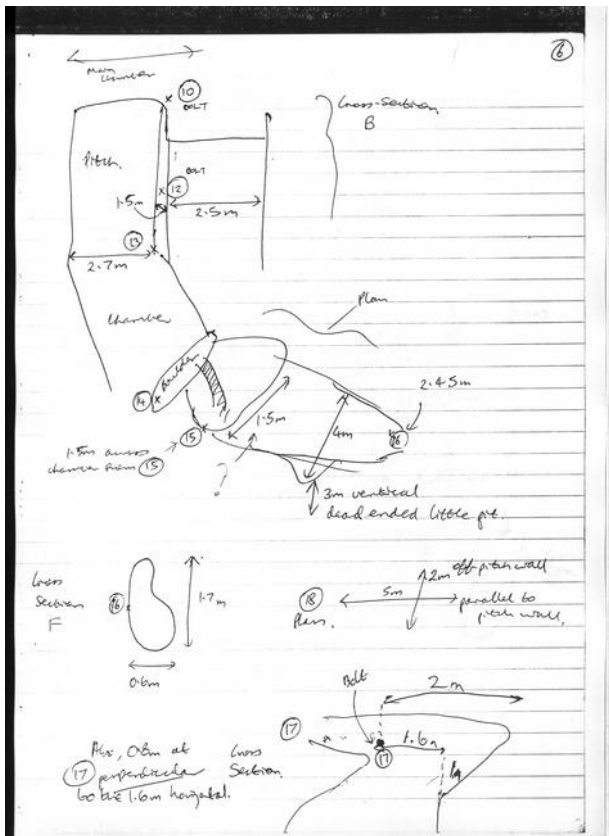 6
main
chamber
10
BOLT
Cross-Section
B
Pitch.
BOLT
12
1.5m
2.5m
13
2.7m
Plan
Chamber
Boulder
14
2.45m
1.5m
4m
16
15
1.5m across
chamber from 15
?
3m vertical
dead ended little pit.
Cross
Section
F
16
1.7m
0.6m
18
Plan.
2m off pitch wall
5m
parallel to
pitch wall.
Bolt
2m
17
1.6m
17
Also, 0.8m at
17 perpendicular
to the 1.6m horizontal.
Cross
Section.